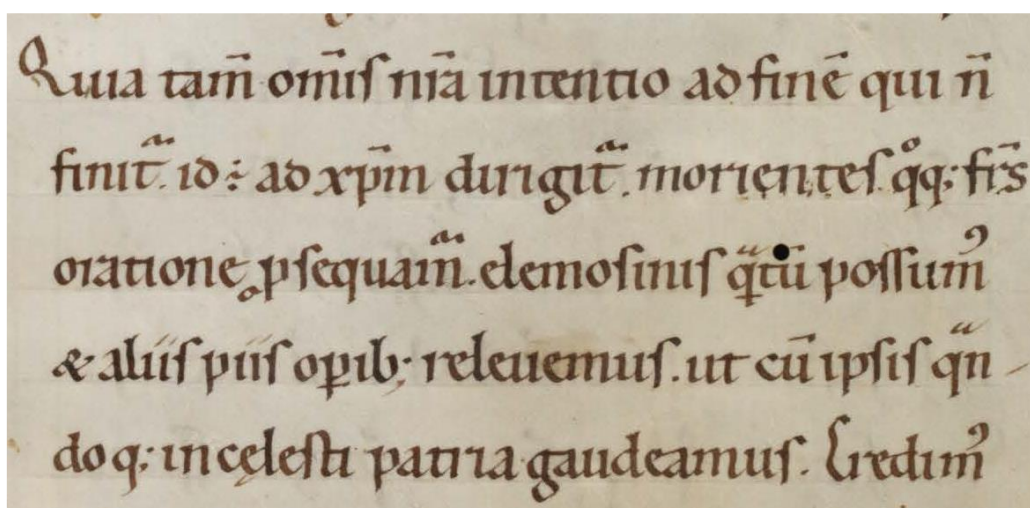 Quia tam̄ om̄ıſ nr̄a intentio ad finē qui n̄
finitᷓ. id ÷ ad xp̄m dirigitᷓ. morientes. qͦq; fr̄s
oratione ꝓsequamᷓ. elemosiniſ qᷓtū poſſumꝰ
& aliiſ piiſ oꝑib; releuemuſ. ut cū ipſiſ qᷓn
do q; in cęleſti patria gaudeamuſ. Credimꝰ